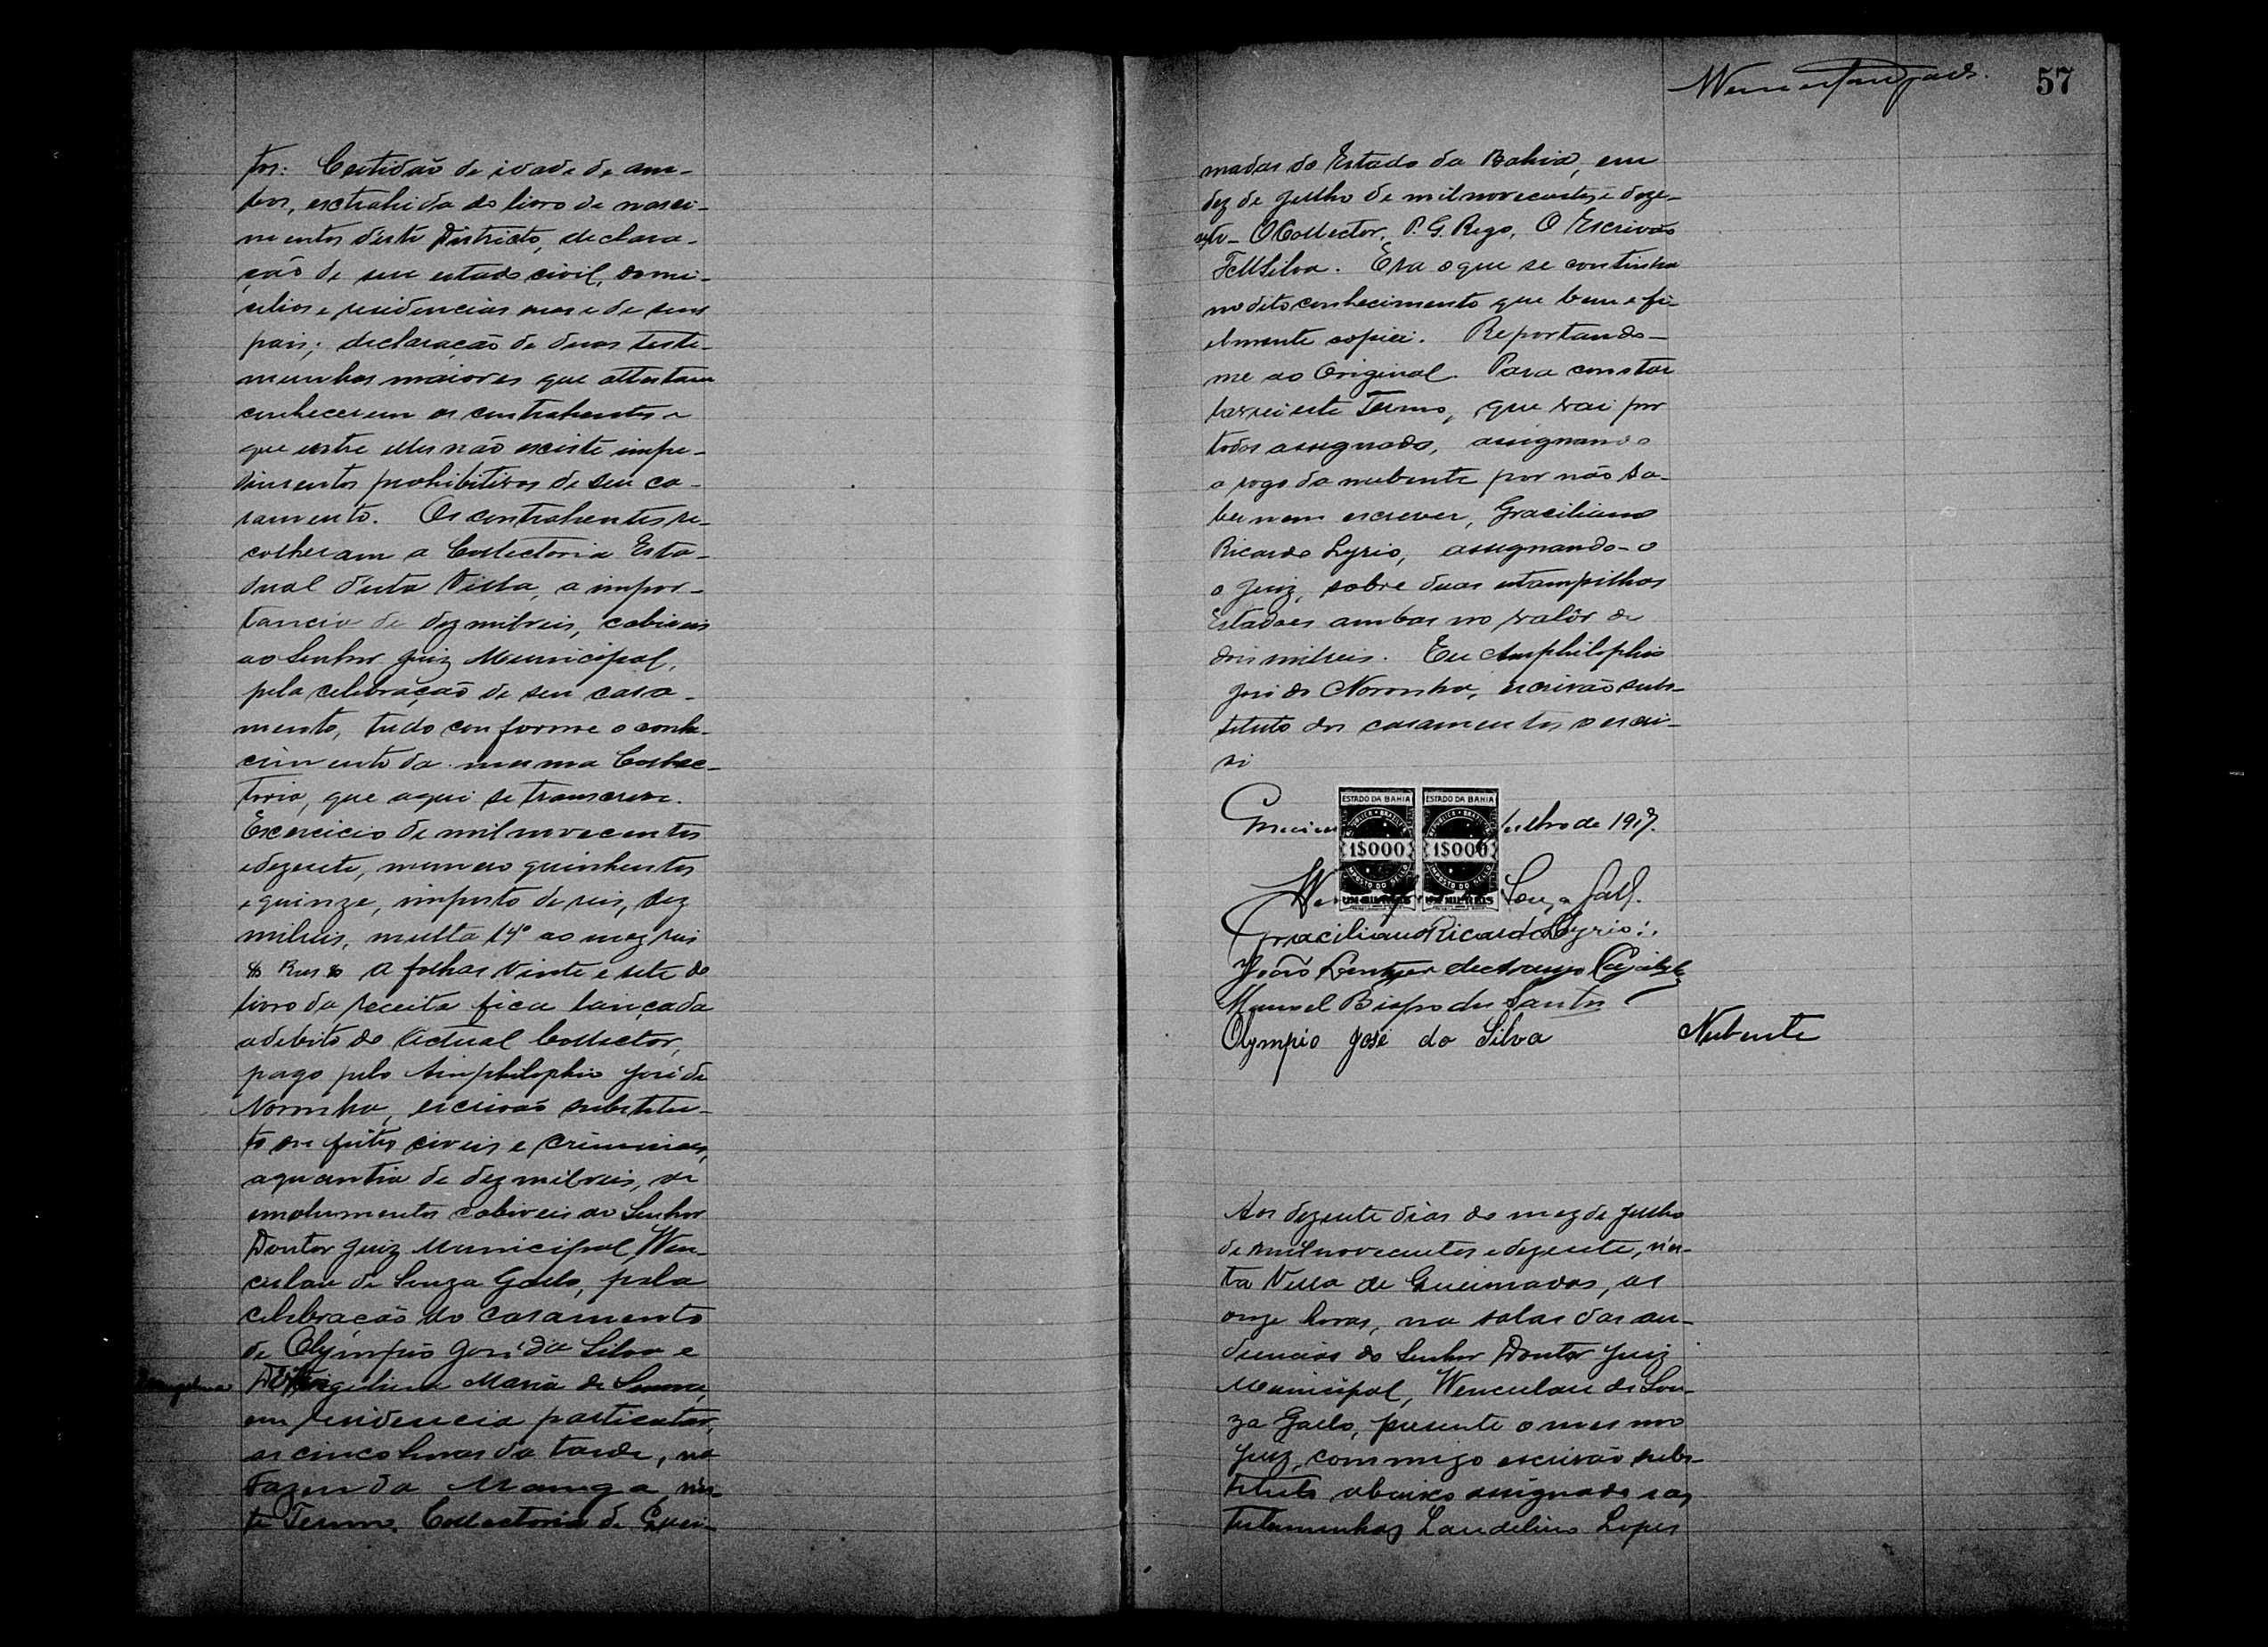 tos: Certidão de idade de am-
bos, extrahida do livro de nasci-
mentos d'este Districto, declara-
ção de seu estado civil, domi-
cilios e residencias e de seus
pais; declaração de duas teste-
munhas maiores que attestam
conhecerem os contrahentes e
que entre elles não existe impe-
dimentos prohibitivos de seu ca-
samento. Os contrahentes re-
colheram a Collectoria Esta-
dual d'esta Villa, a impor-
tancia de dez mil reis, cabiveis
ao Senhor Juiz Municipal,
pela celebração de seu casa-
mento, tudo conforme o conhe-
cimento da mesma Collec-
toria, que aqui se transcreve.
Exercicio de mil novecentos
e dezesete, numero quinhentos
e quinze, imposto de reis, dez
mil reis, multa ao mez reis
Reis A folhas vinte e sete do
livro da receita fica lançada
a debito do actual Collector,
pago pelo Amphilophio José de
Noronha, escrivão substitu-
to feitos civeis e criminaes,
a quantia de dez mil reis, de
emolumentos cabiveis ao Senhor
Doutor Juiz Municipal Wen-
ceslau de Souza Gallo, pela
celebração do casamento
de Olympio José da Silva e
Angelina Maria de
em residencia particular,
as cinco horas da tarde, na
Fazenda Manga, nes-
te Termo. Collectoria de Quei-
57
madas do Estado da Bahia, em
dez de Julho de mil novecentos e deze-
sete - O Collector, P. G. Rego, O Escrivão
Silva. Era o que se continha
no dito conhecimento que bem e fi-
elmente copiei. Reportando-
me ao Original. Para constar
lavrei este Termo, que vai por
todos assignado, assignando
a rogo da nubente por não sa-
ber nem escrever, Graciliano
Ricardo Lyrio, assignando-o
o Juiz, sobre duas estampilhas
Estadaes ambas no valôr de
dois mil reis. Eu Amphilophio
José de Noronha, escrivão subs-
tituto dos casamentos o escre-
vi
ESTADO DA BAHIA ESTADO DA BAHIA
Julho de 1917.
1$000 1$000
IMPOSTO DO SELLO IMPOSTO DO SELLO
UM MIL REIS UM MIL REIS
Souza Gallo.
Graciliano Ricardo Lyrio
João de Araujo
Manoel Bispo dos Santos
Olympio José da Silva Nubente
Aos dezesete dias do mez de Julho
de mil novecentos e dezesete, n'es-
ta Villa de Queimadas, as
onze horas, na salas das au-
diencias do Senhor Doutor Juiz
Municipal, Wenceslau de Sou-
za Gallo, presente o mesmo
Juiz, commigo escrivão subs-
tituto abaixo assignado e as
testemunhas Laudelino Lopes